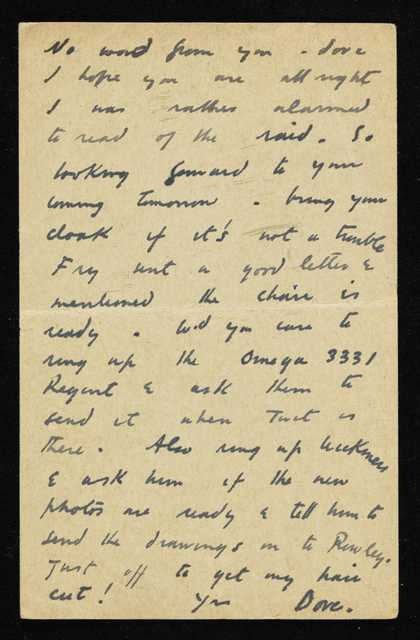 No word from you - dove
I hope you are all right
I was rather alarmed
to read of the raid. So
looking forward to your
coming tomorrow - bring your
cloak if it's not a trouble
Fry sent a good letter &
mentioned the chair is
ready. Wd you care to
ring up the Omega 3331
Regent & ask them to
send it when is
there. Also ring up
& ask him if the new
photos are ready & tell him to
send the drawings on to Rowley.
Just off to get my hair
cut! Yrs Dove.